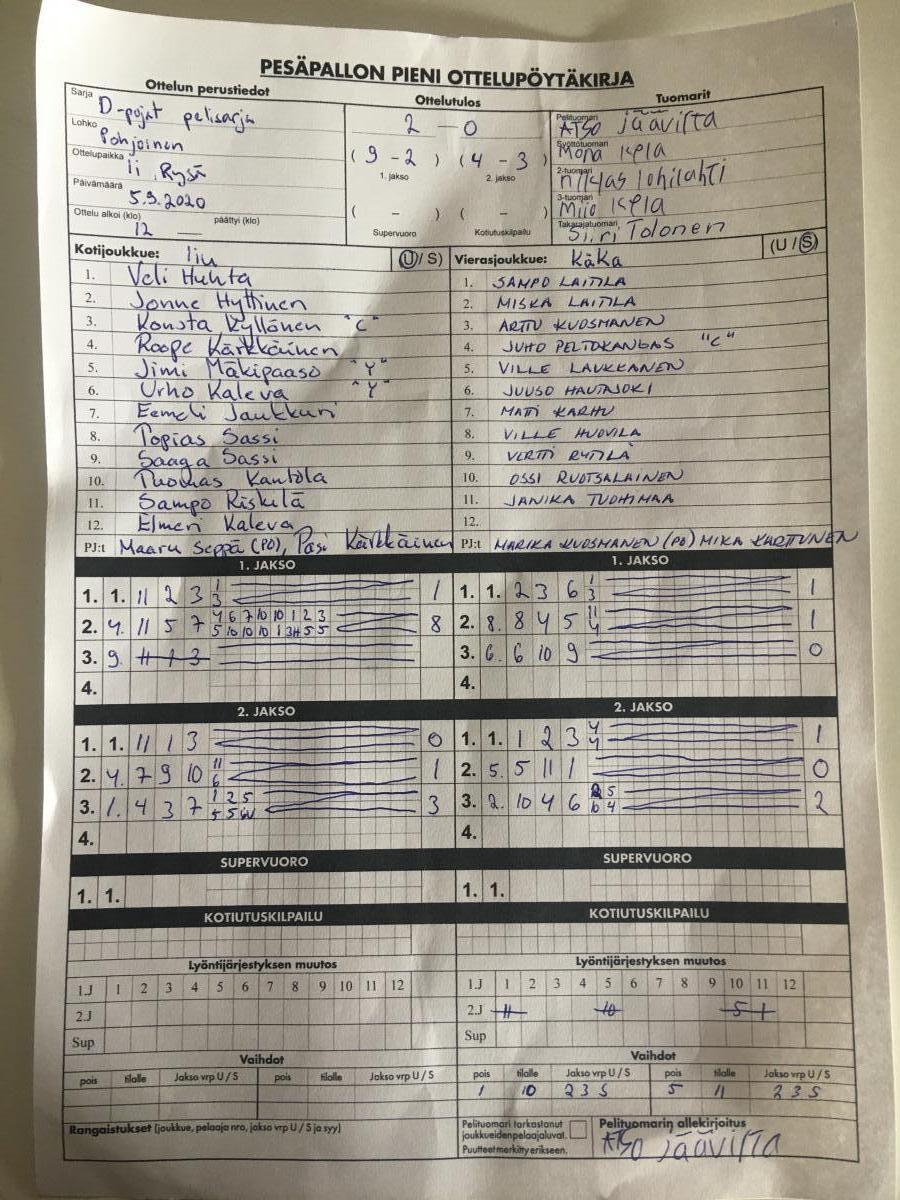 PESÄPALLON PIENI OTTELUPÖYTÄKIRJA
Ottelun perustiedot
Sarja D-pojat pelisarja
Lohko Pohjoinen
Ottelupaikka Ii, Rysä
Päivämäärä 5.9.2020
Ottelu alkoi (klo) 12 päättyi (klo) —
Ottelutulos
2 - 0
( 9 - 2 ) ( 4 - 3 )
1. jakso 2. jakso
( - ) ( - )
Supervuoro Kotiutuskilpailu
Tuomarit
Pelituomari ATSO Jäävirta
Syöttötuomari Mona Kela
2-tuomari Niklas lohilahti
3-tuomari Miio Kela
Takarajatuomari Siiri Tolonen
Kotijoukkue: Iiu (U / S)
1. Veli Huhta
2. Jonne Hyttinen
3. Konsta Kyllönen "C"
4. Roope Kärkkäinen
5. Jimi Mäkipaaso "Y"
6. Urho Kaleva "Y"
7. Eemeli Jaukkuri
8. Topias Sassi
9. Saaga Sassi
10. Tuomas Kantola
11. Sampo Riskilä
12. Elmeri Kaleva
PJ:t Maaru Seppä (PO), Pasi Kärkkäinen
Vierasjoukkue: KäKa (U / S)
1. SAMPO LAITILA
2. MISKA LAITILA
3. ARTTU KUOSMANEN
4. JUHO PELTOKANGAS "C"
5. VILLE LAUKKANEN
6. JUUSO HAUTAJOKI
7. MATTI KARHU
8. VILLE HUOVILA
9. VERTTI RYTILÄ
10. OSSI RUOTSALAINEN
11. JANIKA TUOHIMAA
12.
PJ:t MARIKA KUOSMANEN (PO) MIKA KARTTUNEN
1. JAKSO
1. 1. 11 2 3 1 3 1
2. 4. 11 5 7 4 6 7 10 10 1 2 3 8
5 10 10 10 1 3H 5 5
3. 9. 11 1 3
4.
2. JAKSO
1. 1. 11 1 3 0
2. 4. 7 9 10 11 6 1
3. 1. 4 3 7 1 2 5 3
5 5
4.
SUPERVUORO
1. 1.
KOTIUTUSKILPAILU
Lyöntijärjestyksen muutos
1.J 1 2 3 4 5 6 7 8 9 10 11 12
2.J
Sup
Vaihdot
pois tilalle Jakso vrp U / S pois tilalle Jakso vrp U / S
Rangaistukset (joukkue, pelaaja nro, jakso vrp U / S ja syy)
1. JAKSO
1. 1. 2 3 6 1 3 1
2. 8. 8 4 5 11 4 1
3. 6. 6 10 9 0
4.
2. JAKSO
1. 1. 1 2 3 4 4 1
2. 5. 5 11 1 0
3. 2. 10 4 6 5 2
10 4
4.
SUPERVUORO
1. 1.
KOTIUTUSKILPAILU
Lyöntijärjestyksen muutos
1.J 1 2 3 4 5 6 7 8 9 10 11 12
2.J 11 10 5 1
Sup
Vaihdot
pois tilalle Jakso vrp U / S pois tilalle Jakso vrp U / S
1 10 2 3 S 5 11 2 3 S
Pelituomari tarkastanut
joukkueiden pelaajaluvat.
Puutteet merkitty erikseen.
Pelituomarin allekirjoitus
ATSO Jäävirta